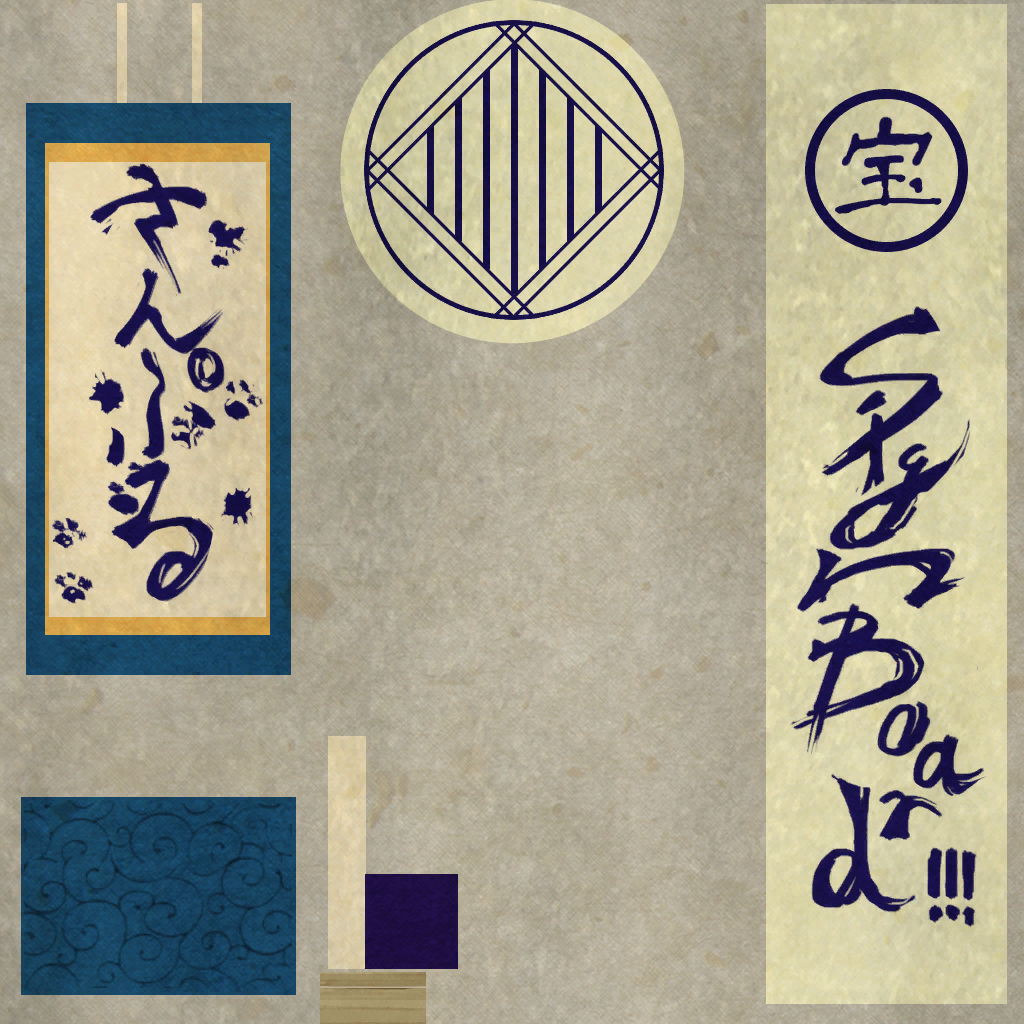 さんぷる
宝
Sign
Board!!!